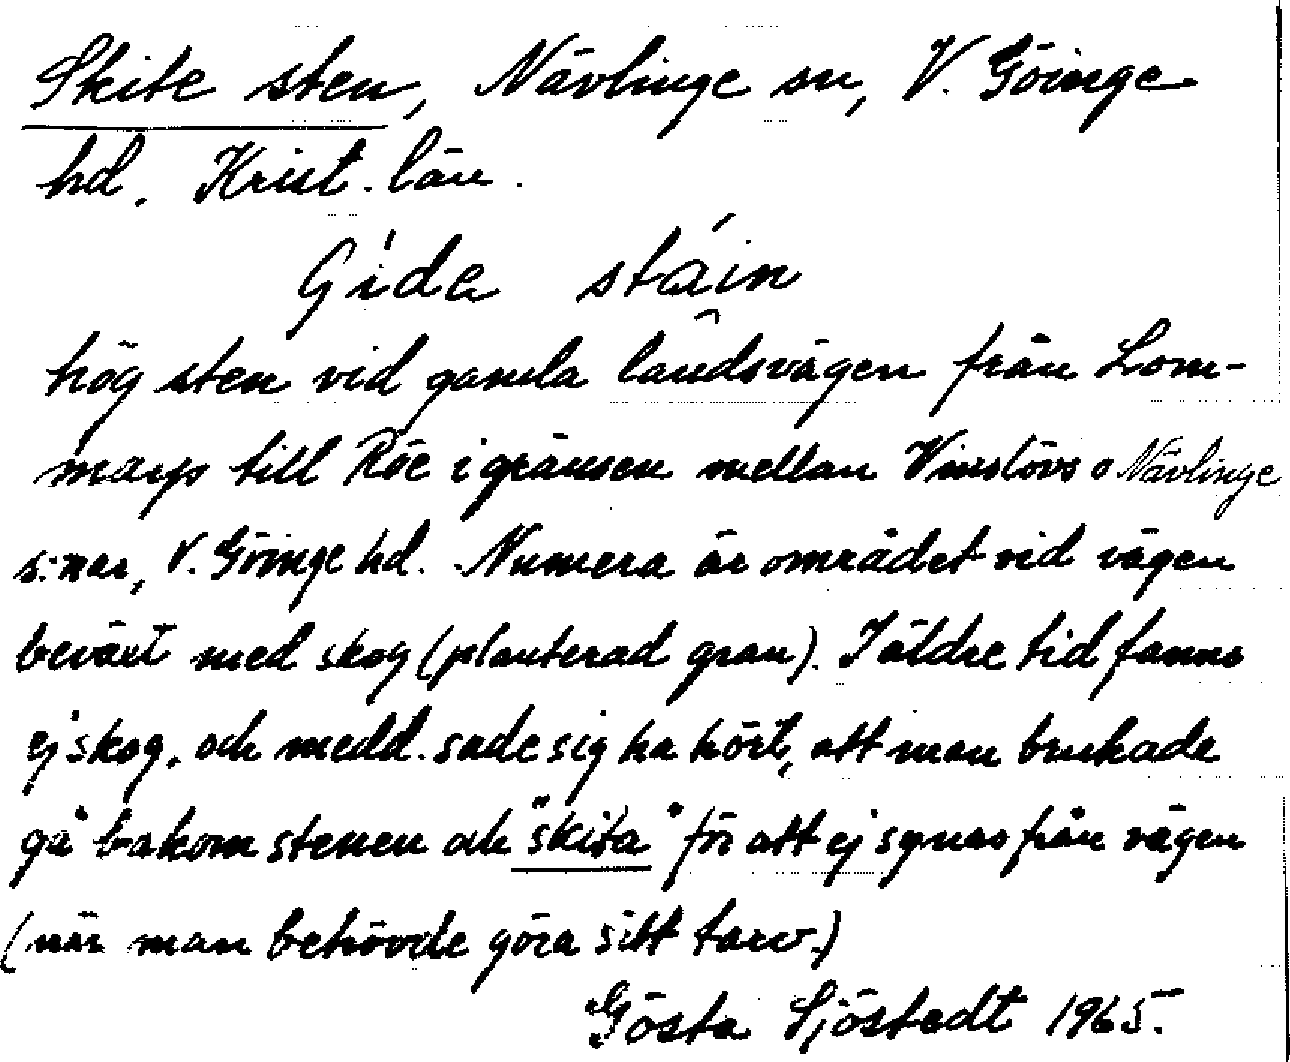 Skite sten, Nävlinge sn, V. Göinge
hd. Krist. län.
Gida stáin
hög sten vid gamla landsvägen från Lom-
marp till Röe i gränsen mellan Vinslövs o Nävlinge
s:nar, V. Göinge hd. Numera är området vid vägen
beväxt med skog (planterad gran). I äldre tid fanns
ej skog, och medd. sade sig ha hört, att man brukade
gå bakom stenen och "skita" för att ej synas från vägen
(när man behövde göra sitt tarv.)
Gösta Sjöstedt 1965.